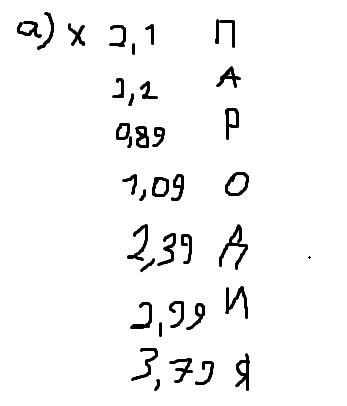 а) x П
А
0,89 Р
1,09 О
2,39 Д
2,99 И
3,79 Я